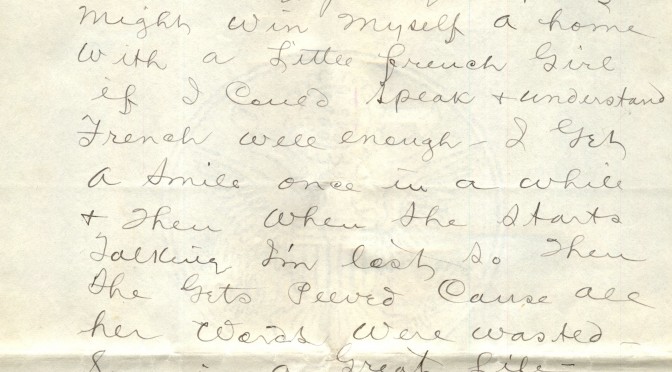 Might win myself a home
With a Little french Girl
if I Could Speak + understand
French well enough - I Get
A Smile once in a while
+ Then When She Starts
Talking I'm lost, so Then
She Gets Peeved Cause all
her Words Were wasted -
a Great Life -